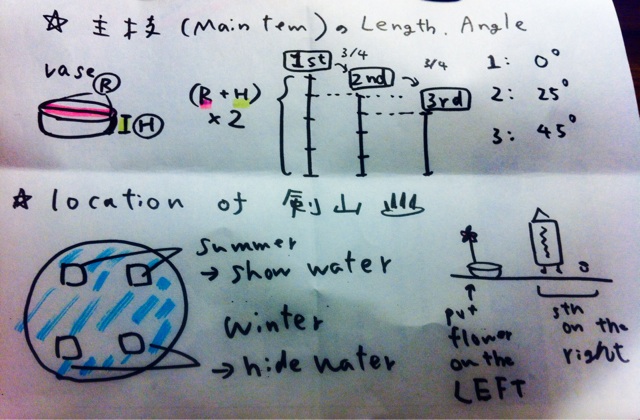 ☆ 主枝 (Main tem) の Length. Angle
vase
R
H
(R + H)
×2
1st
3/4
2nd
3/4
3rd
1: 0°
2: 25°
3: 45°
☆ location of 剣山
summer
→ show water
winter
→ hide water
put
flower
on the
LEFT
sth
on the
right